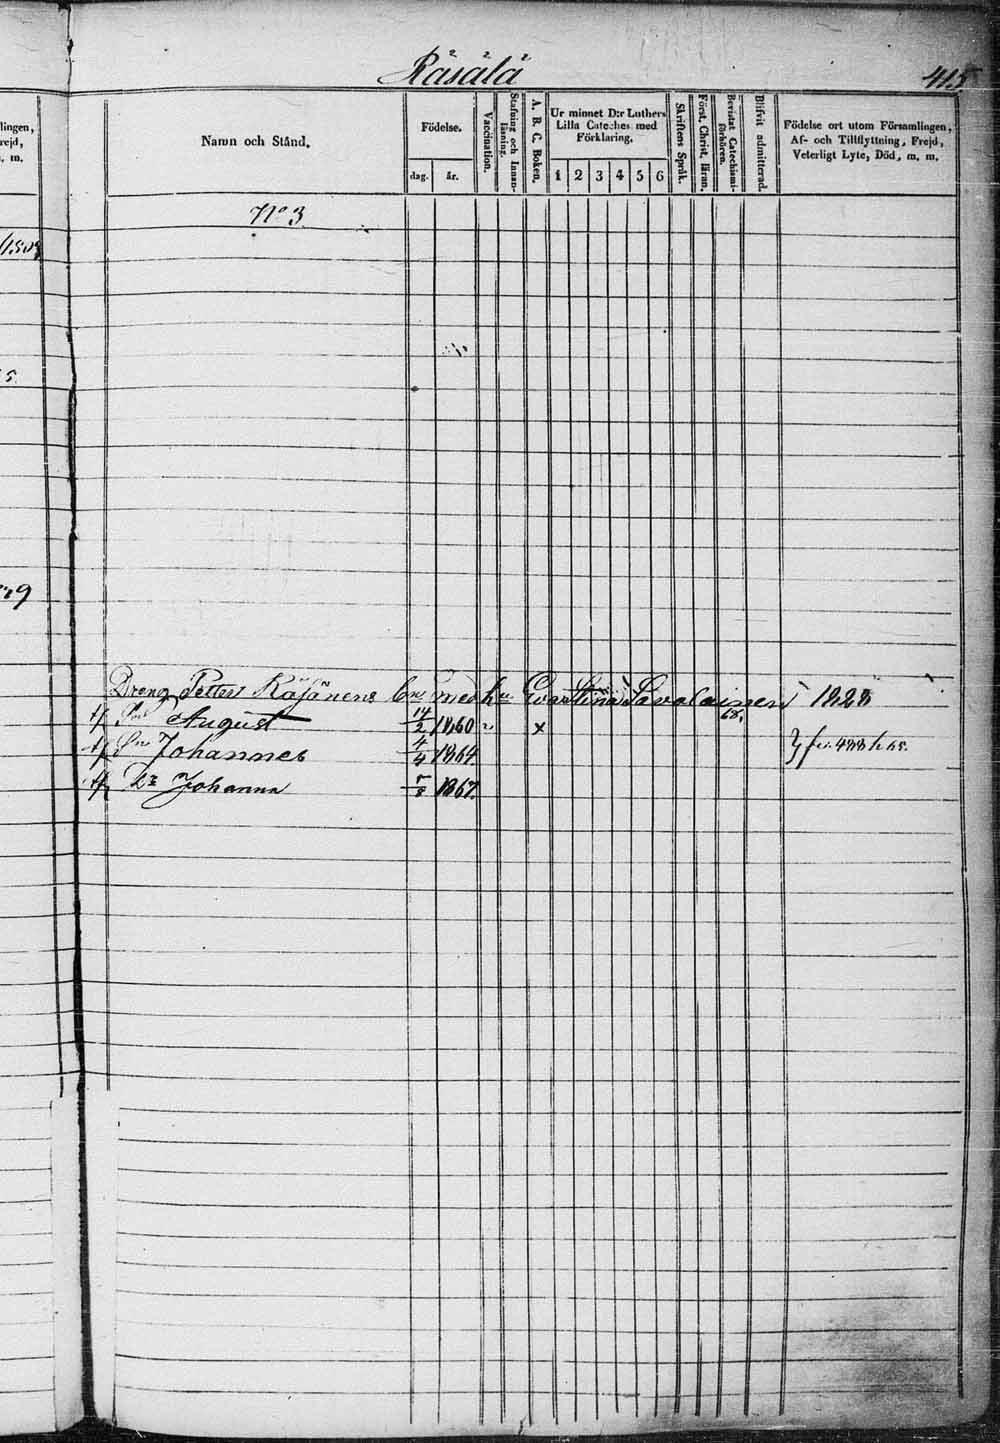 Räsälä
415
lingen,
rejd,
m.
Namn och Stånd.
Födelse.
dag.
år.
Vaccination.
Stafning och Innan-
läsning.
A. B. C. Boken.
Ur minnet D:r Luthers
Lilla Cateches med
Förklaring.
1 2 3 4 5 6
Skriftens Språk.
Först. Christ. läran.
Bevistat Catechismi-
förhören.
Blifvit admitterad.
Födelse ort utom Församlingen,
Af- och Tillflyttning, Frejd,
Veterligt Lyte, Död, m. m.
No 3
Dreng Petter Räjänens med hu Stina Savolainen 1828
August 14/2 1860 x 68.
Johannes 4/4 1864 433 h 65.
Johanna 7/8 1867.